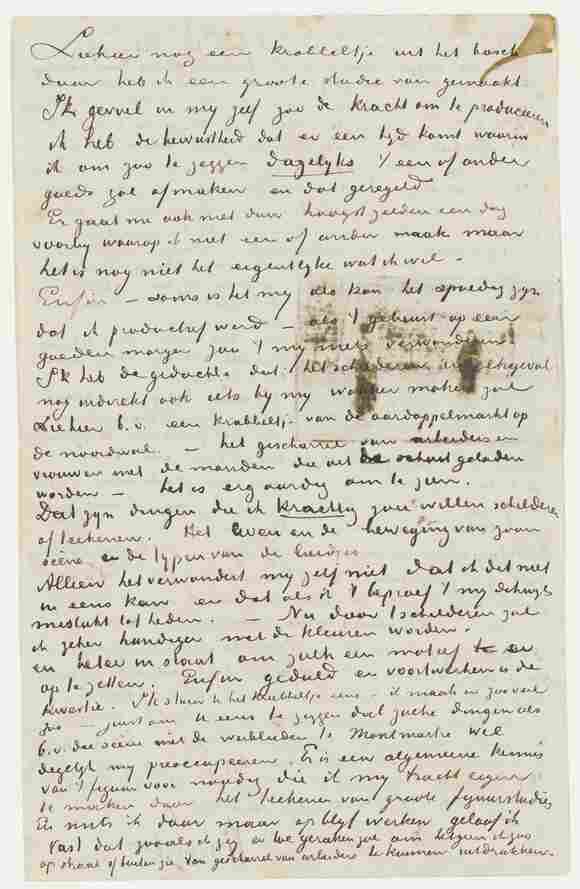 Ziehier nog een krabbeltje uit het bosch
daar heb ik een groote studie van gemaakt
Ik gevoel in mij zelf zoo de kracht om te produceeren
ik heb de bewustheid dat er een tijd komt waarin
ik om zoo te zeggen dagelijks 't een of ander
goeds zal afmaken en dat geregeld
Er gaat nu ook niet dan hoogst zelden een dag
voorbij waarop ik niet een of ander maak maar
het is nog niet het eigentlijke wat ik wil –
Enfin – soms is het mij als kan het spoedig zijn
dat ik productief werd – als 't gebeurt op een
goeden morgen zou 't mij niets verwonderen
Ik heb de gedachte dat het schilderen in elk geval
nog indirekt ook iets bij mij wakker maken zal
Ziehier b.v. een krabbeltje van de aardappelmarkt op
de noordwal. – het gescharrel van arbeiders en
vrouwen met de manden die uit de schuit geladen
worden – het is erg aardig om te zien.
Dat zijn dingen die ik krachtig zou willen schilderen
of teekenen. Het leven en de beweging van zoon
scène en de typen van de luidjes
Alleen het verwondert mij zelf niet dat ik dit niet
in eens kan en dat als ik 't beproef 't mij dikwijls
mislukt tot heden. – Nu door 't schilderen zal
ik zeker handiger met de kleuren worden.
en beter in staat om zulk een motief er
op te zetten. Enfin geduld en voortwerken is de
kwestie. Ik stuur U het krabbeltje eens – ik maak er zoo veel
zoo – juist om U eens te zeggen dat zulke dingen als
b.v. die scène met de werklieden te Montmartre wel
degelijk mij preoccupeeren. Er is een algemeene kennis
van 't figuur voor noodig die ik mij tracht eigen
te maken door het teekenen van groote figuurstudies
En mits ik daar maar op blijf werken geloof ik
vast dat zooals ik zeg er toe geraken zal om tooneelen zoo
op straat of buiten zie van gescharrel van arbeiders te kunnen uitdrukken.